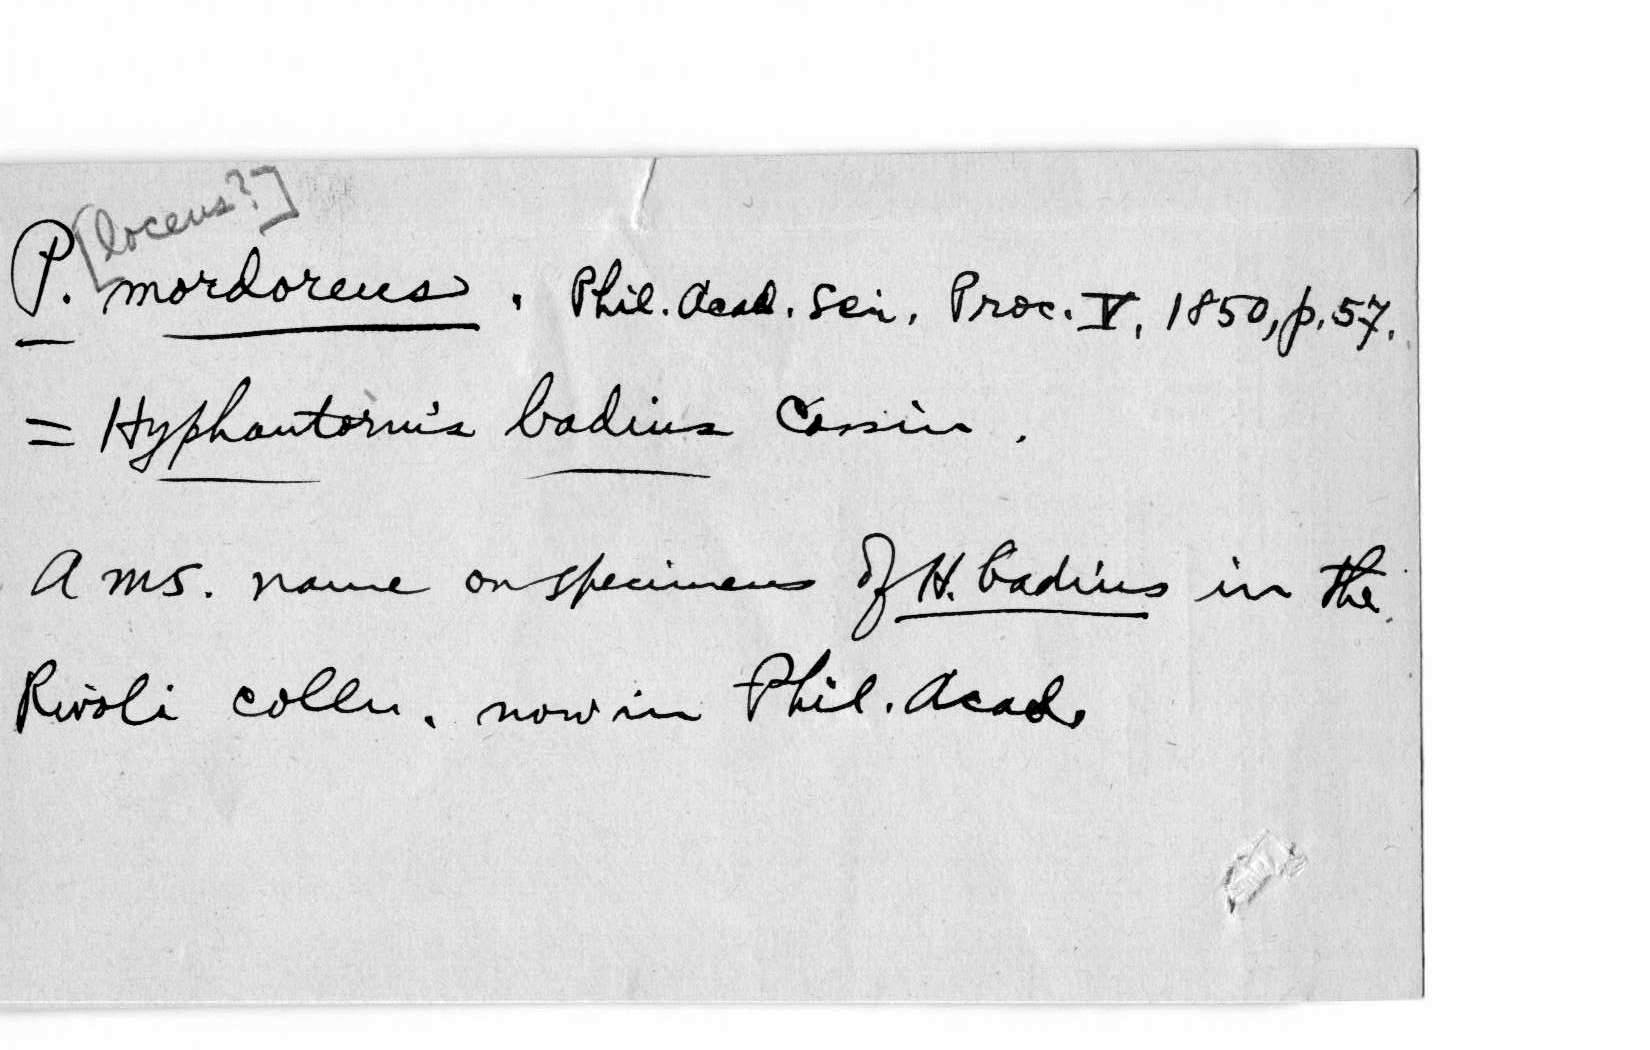 [loceus?]
P. mordoreus. Phil. Acad. Sci. Proc. V, 1850, p. 57.
= Hyphantornis badius Cassin.
A ms. name on specimens of H. badius in the
Rivoli colln. now in Phil. Acad.